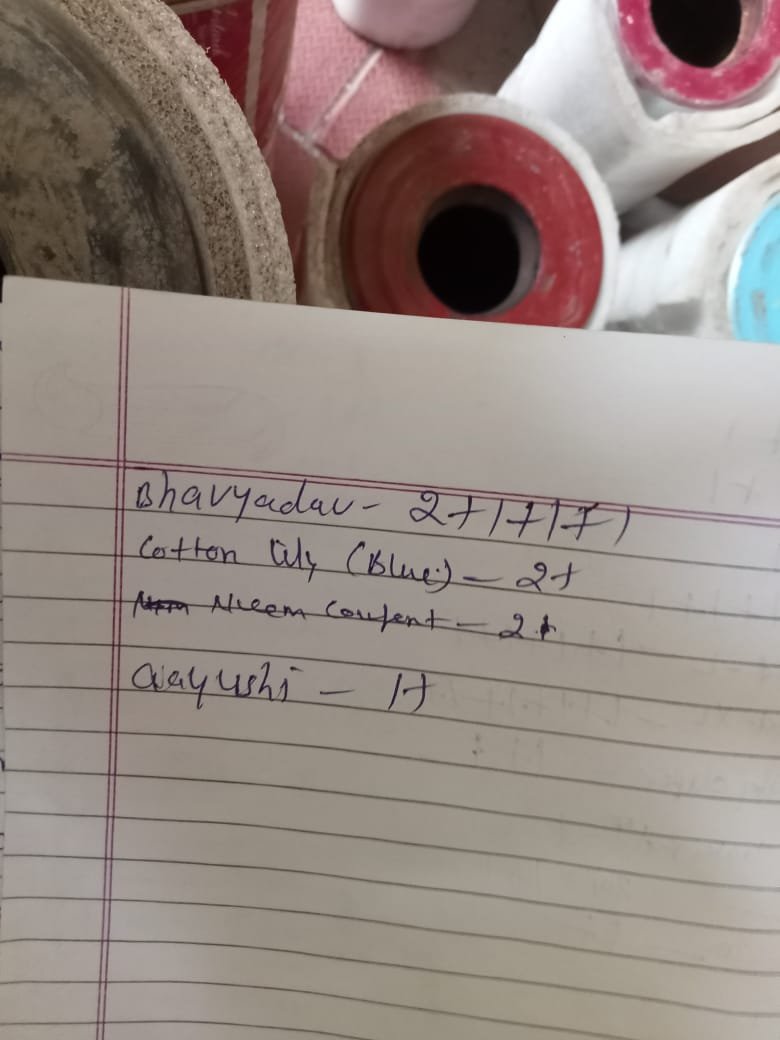 Bhavyadav - 2+1+1+1
Cotton City (Blue) - 2+
Neem - 2+
Aayushi - 1+